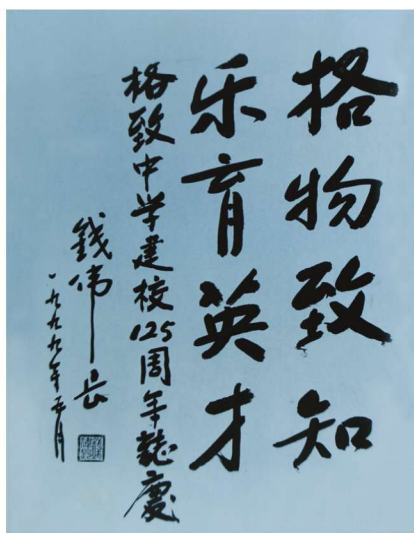 格物致知
乐育英才
格致中学建校125周年誌慶
錢伟长
一九九九年五月